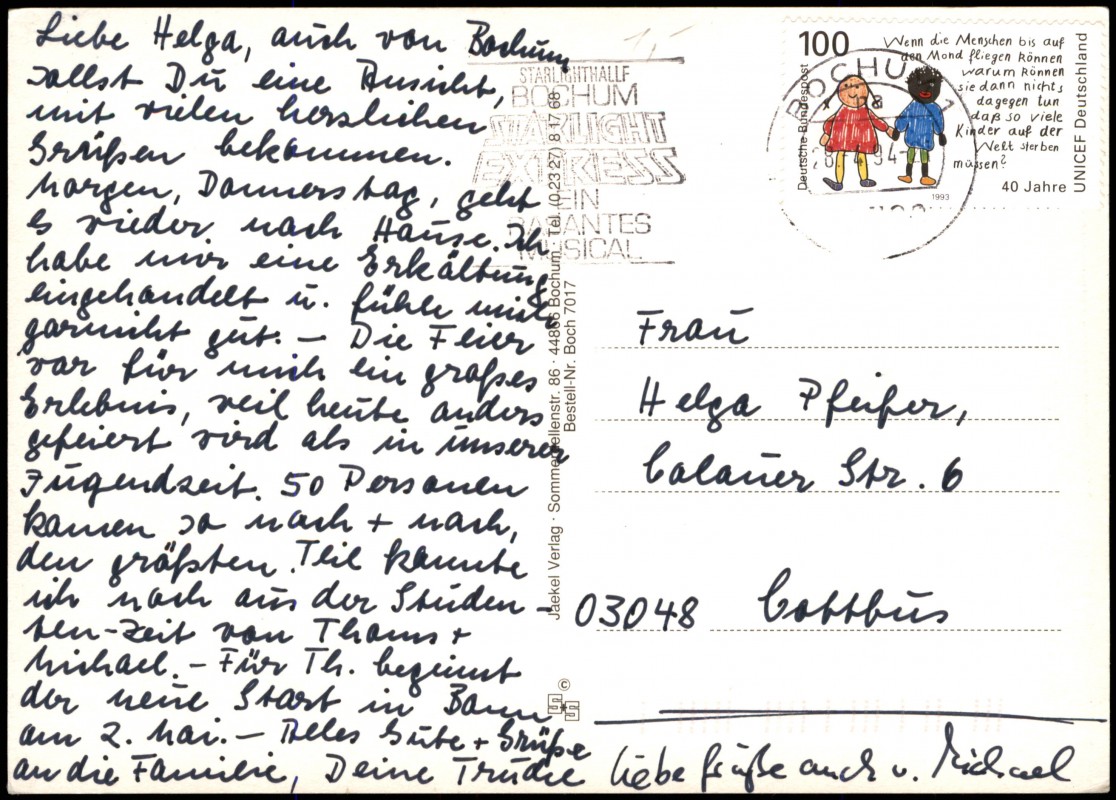 Liebe Helga, auch von Bochum
sollst Du eine Ansicht,
mit vielen herzlichen
Grüßen bekommen.
Morgen, Donnerstag, geht
es wieder nach Hause. Ich
habe mir eine Erkältung
eingehandelt u. fühle mich
garnicht gut. – Die Feier
war für mich ein großes
Erlebnis, weil heute anders
gefeiert wird als in unserer
Jugendzeit. 50 Personen
kamen so nach + nach,
den größten Teil kannte
ich noch aus der Studen-
ten-Zeit von Thomas +
Michael. – Für Th. beginnt
der neue Start in Bonn
am 2. Mai. – Alles Gute + Grüße
an die Familie, Deine Trudie
Liebe Grüße auch v. Michael
STARLIGHTHALLE
BOCHUM
STARLIGHT
EXPRESS
EIN
MUSICAL
Jaekel Verlag · Sommerdellenstr. 86 · 44866 Bochum · Tel. (0 23 27) 8 17 68
Bestell-Nr. Boch 7017
©
100
Deutsche Bundespost
Wenn die Menschen bis auf
den Mond fliegen können
warum können
sie dann nichts
dagegen tun
daß so viele
Kinder auf der
Welt sterben
müssen?
40 Jahre
UNICEF Deutschland
1993
BOCHUM 1
Frau
Helga Pfeifer,
Calauer Str. 6
03048 Cottbus